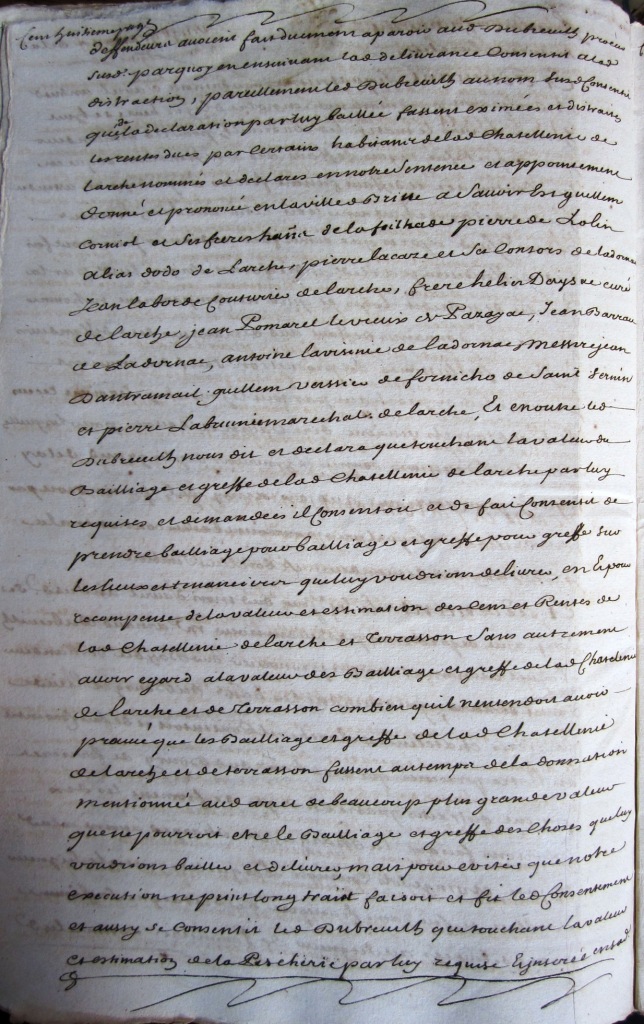 Cent huitieme page
deffendeurs avoient faict duement aparoir aud Dubreuilh procu
susd. parquoy en ensuivant lad delivrance consentit a lad
distraction, pareillement led Dubreuilh au nom susd consenti
que de la declaration par luy baillée fussent eximées et distraites
les rentes dues par certains habitans de lad Chastellenie de
Larche nommés et declarés en notre sentence et appoinctement
donné et prononcé en la ville de Brive a scavoir est guillem
Corniol et ses freres de la feilhade pierre de Lolin
alias dodo de Larche, pierre lacaze et ses Consors de ladornac
Jean laborde Couturier de larche, frere helion Days curé
de larche, jean Pomarel le vieux de Pazayac, Jean Barrau
de Ladornac, antoine lavisinie de ladornac, messire jean
Dautramail guillem verssier de fornicho de Saint Sernin
et pierre Labrunie marechal de larche, Et en outre led
Dubreuilh nous dit et declara que touchant la valeur du
Bailliage et greffe de lad Chastellenie de larche par luy
requises et demandées il Consentoit et de fait Consentit de
prendre bailliage pour bailliage et greffe pour greffe sur
les lieux et mancieux que luy voudrions delivrer, en Et pour
recompense de la valeur et estimation des Cens et Rentes de
lad Chastellenie de larche et Terrasson sans autrement
avoir egard a la valeur des Bailliage et greffe de lad Chastelenie
de larche et de Terrasson combien quil n'entendoit avoir
prouvé que les Bailliage et greffe de lad Chastellenie
de larche et de terrasson fussent au temps de la donnation
mentionnée aud arrest de beaucoup plus grande valeur
que ne pourroit etre le Bailliage et greffe des Choses que luy
voudrions bailler et delivrer, mais pour eviter que notre
execution ne print long trait faisoit et fit led Consentement
et aussy se consentit led Dubreuilh que touchant la valeur
et estimation de la Pescherie par luy requise Et insérée en sad